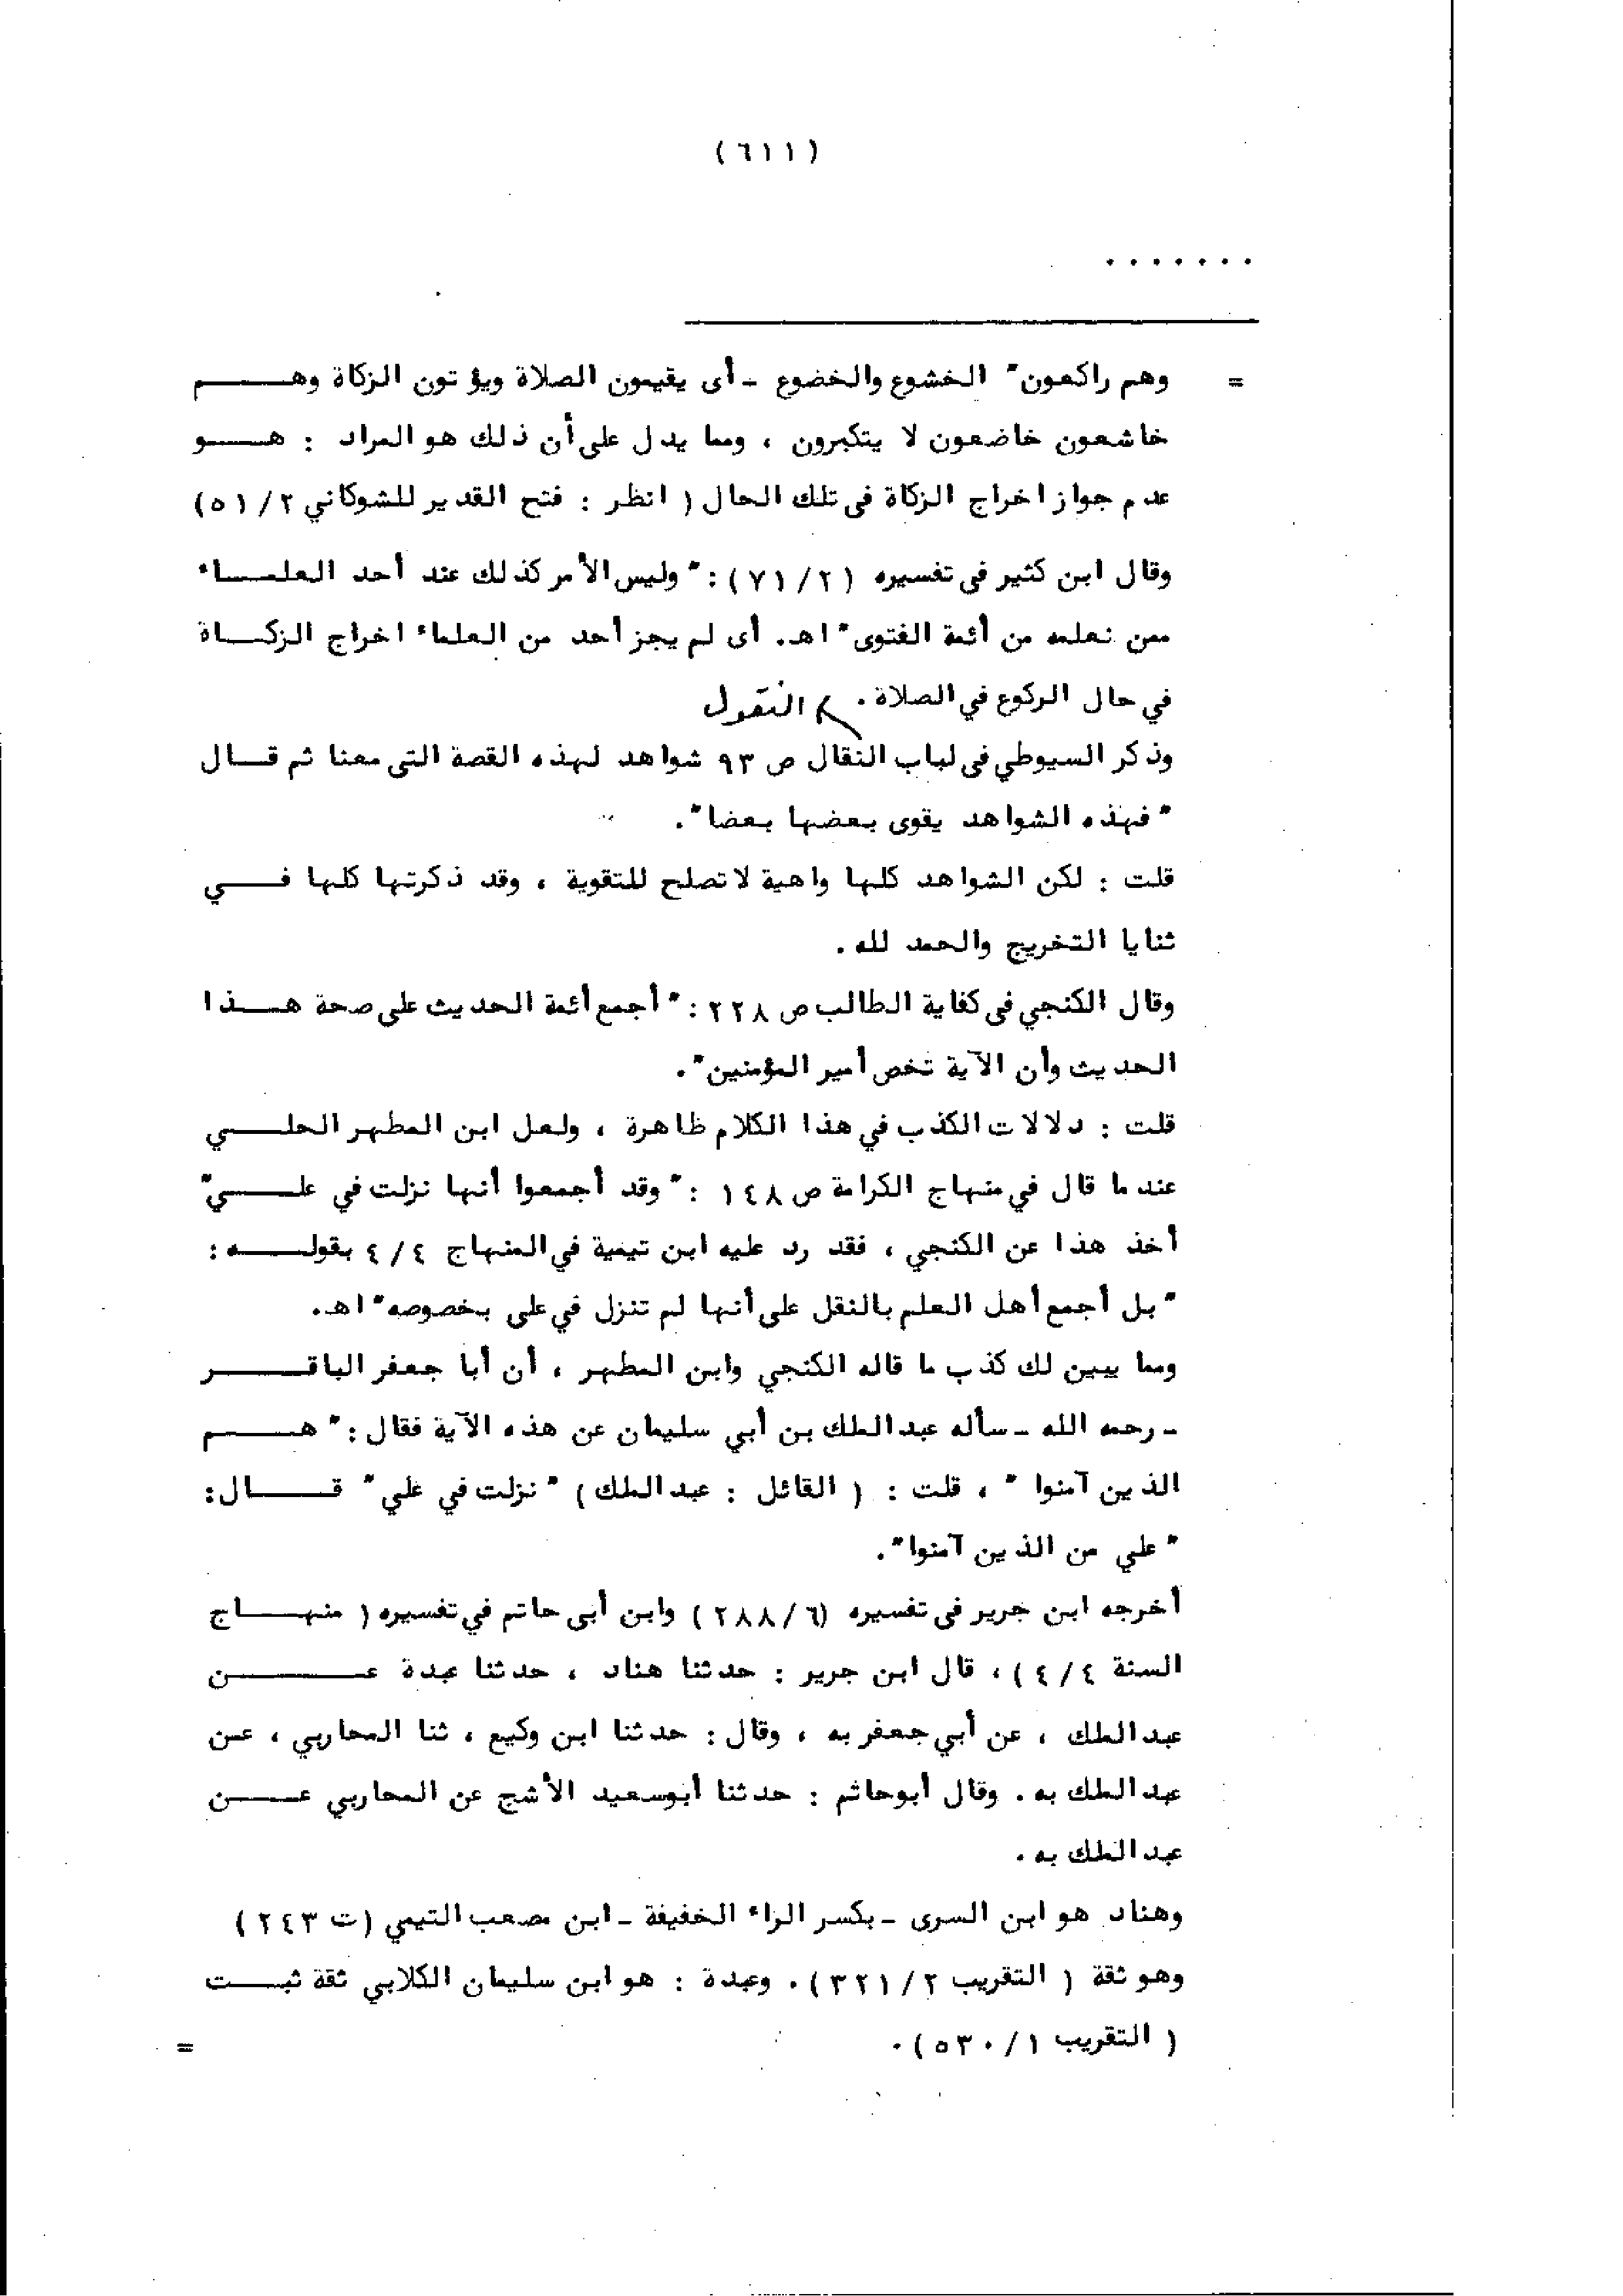 (٦١١)
.......
= وهم راكعون" الخشوع والخضوع - أى يقيمون الصلاة ويؤتون الزكاة وهم
خاشعون خاضعون لا يتكبرون ، ومما يدل على أن ذلك هو المراد : هو
عدم جواز اخراج الزكاة فى تلك الحال ( انظر : فتح القدير للشوكاني ٢/ ٥١)
وقال ابن كثير فى تفسيره (٢/ ٧١) : " وليس الأمر كذلك عند أحد العلماء
ممن نعلمه من أئمة الفتوى" اهـ. أى لم يجز أحد من العلماء اخراج الزكاة
في حال الركوع في الصلاة .
النقول
وذكر السيوطي فى لباب النقال ص ٩٣ شواهد لهذه القصة التى معنا ثم قال
" فهذه الشواهد يقوى بعضها بعضا" .
قلت : لكن الشواهد كلها واهية لا تصلح للتقوية ، وقد ذكرتها كلها في
ثنايا التخريج والحمد لله .
وقال الكنجي فى كفاية الطالب ص ٢٢٨ : " أجمع أئمة الحديث على صحة هذا
الحديث وأن الآية تخص أمير المؤمنين" .
قلت : دلالات الكذب في هذا الكلام ظاهرة ، ولعل ابن المطهر الحلي
عندما قال في منهاج الكرامة ص ١٤٨ : " وقد أجمعوا أنها نزلت في علي"
أخذ هذا عن الكنجي ، فقد رد عليه ابن تيمية في المنهاج ٤/ ٤ بقوله :
" بل أجمع أهل العلم بالنقل على أنها لم تنزل في على بخصوصه" اهـ.
ومما يبين لك كذب ما قاله الكنجي وابن المطهر ، أن أبا جعفر الباقر
- رحمه الله - سأله عبد الملك بن أبي سليمان عن هذه الآية فقال : " هم
الذين آمنوا " ، قلت : ( القائل : عبد الملك ) " نزلت في علي" قال :
" علي من الذين آمنوا" .
أخرجه ابن جرير فى تفسيره (٦/ ٢٨٨) وابن أبى حاتم في تفسيره ( منهاج
السنة ٤/ ٤) ، قال ابن جرير : حدثنا هناد ، حدثنا عبدة عن
عبد الملك ، عن أبي جعفر به ، وقال : حدثنا ابن وكيع ، ثنا المحاربي ، عن
عبد الملك به . وقال أبو حاتم : حدثنا أبو سعيد الأشج عن المحاربي عن
عبد الملك به .
وهناد هو ابن السرى - بكسر الراء الخفيفة - ابن مصعب التيمي (ت ٢٤٣)
وهو ثقة ( التقريب ٢/ ٣٢١) . وعبدة : هو ابن سليمان الكلابي ثقة ثبت
( التقريب ١/ ٥٣٠) . =